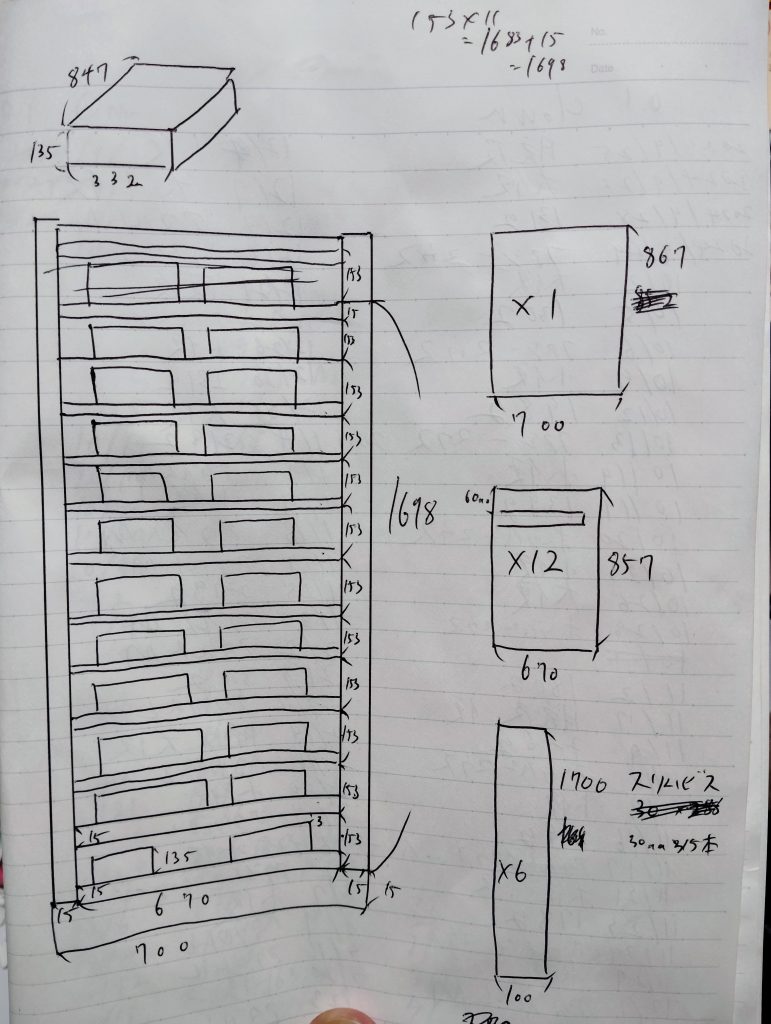 153×11
=1683+15
=1698
No.
Date
847
135
332
153
15
153
153
153
153
153
153
153
153
153
153
153
15
3
135
15
15
15
15
670
700
1698
×1
867
700
60
×12
857
670
1700
スリムビス
30
30㎜ 315本
×6
100